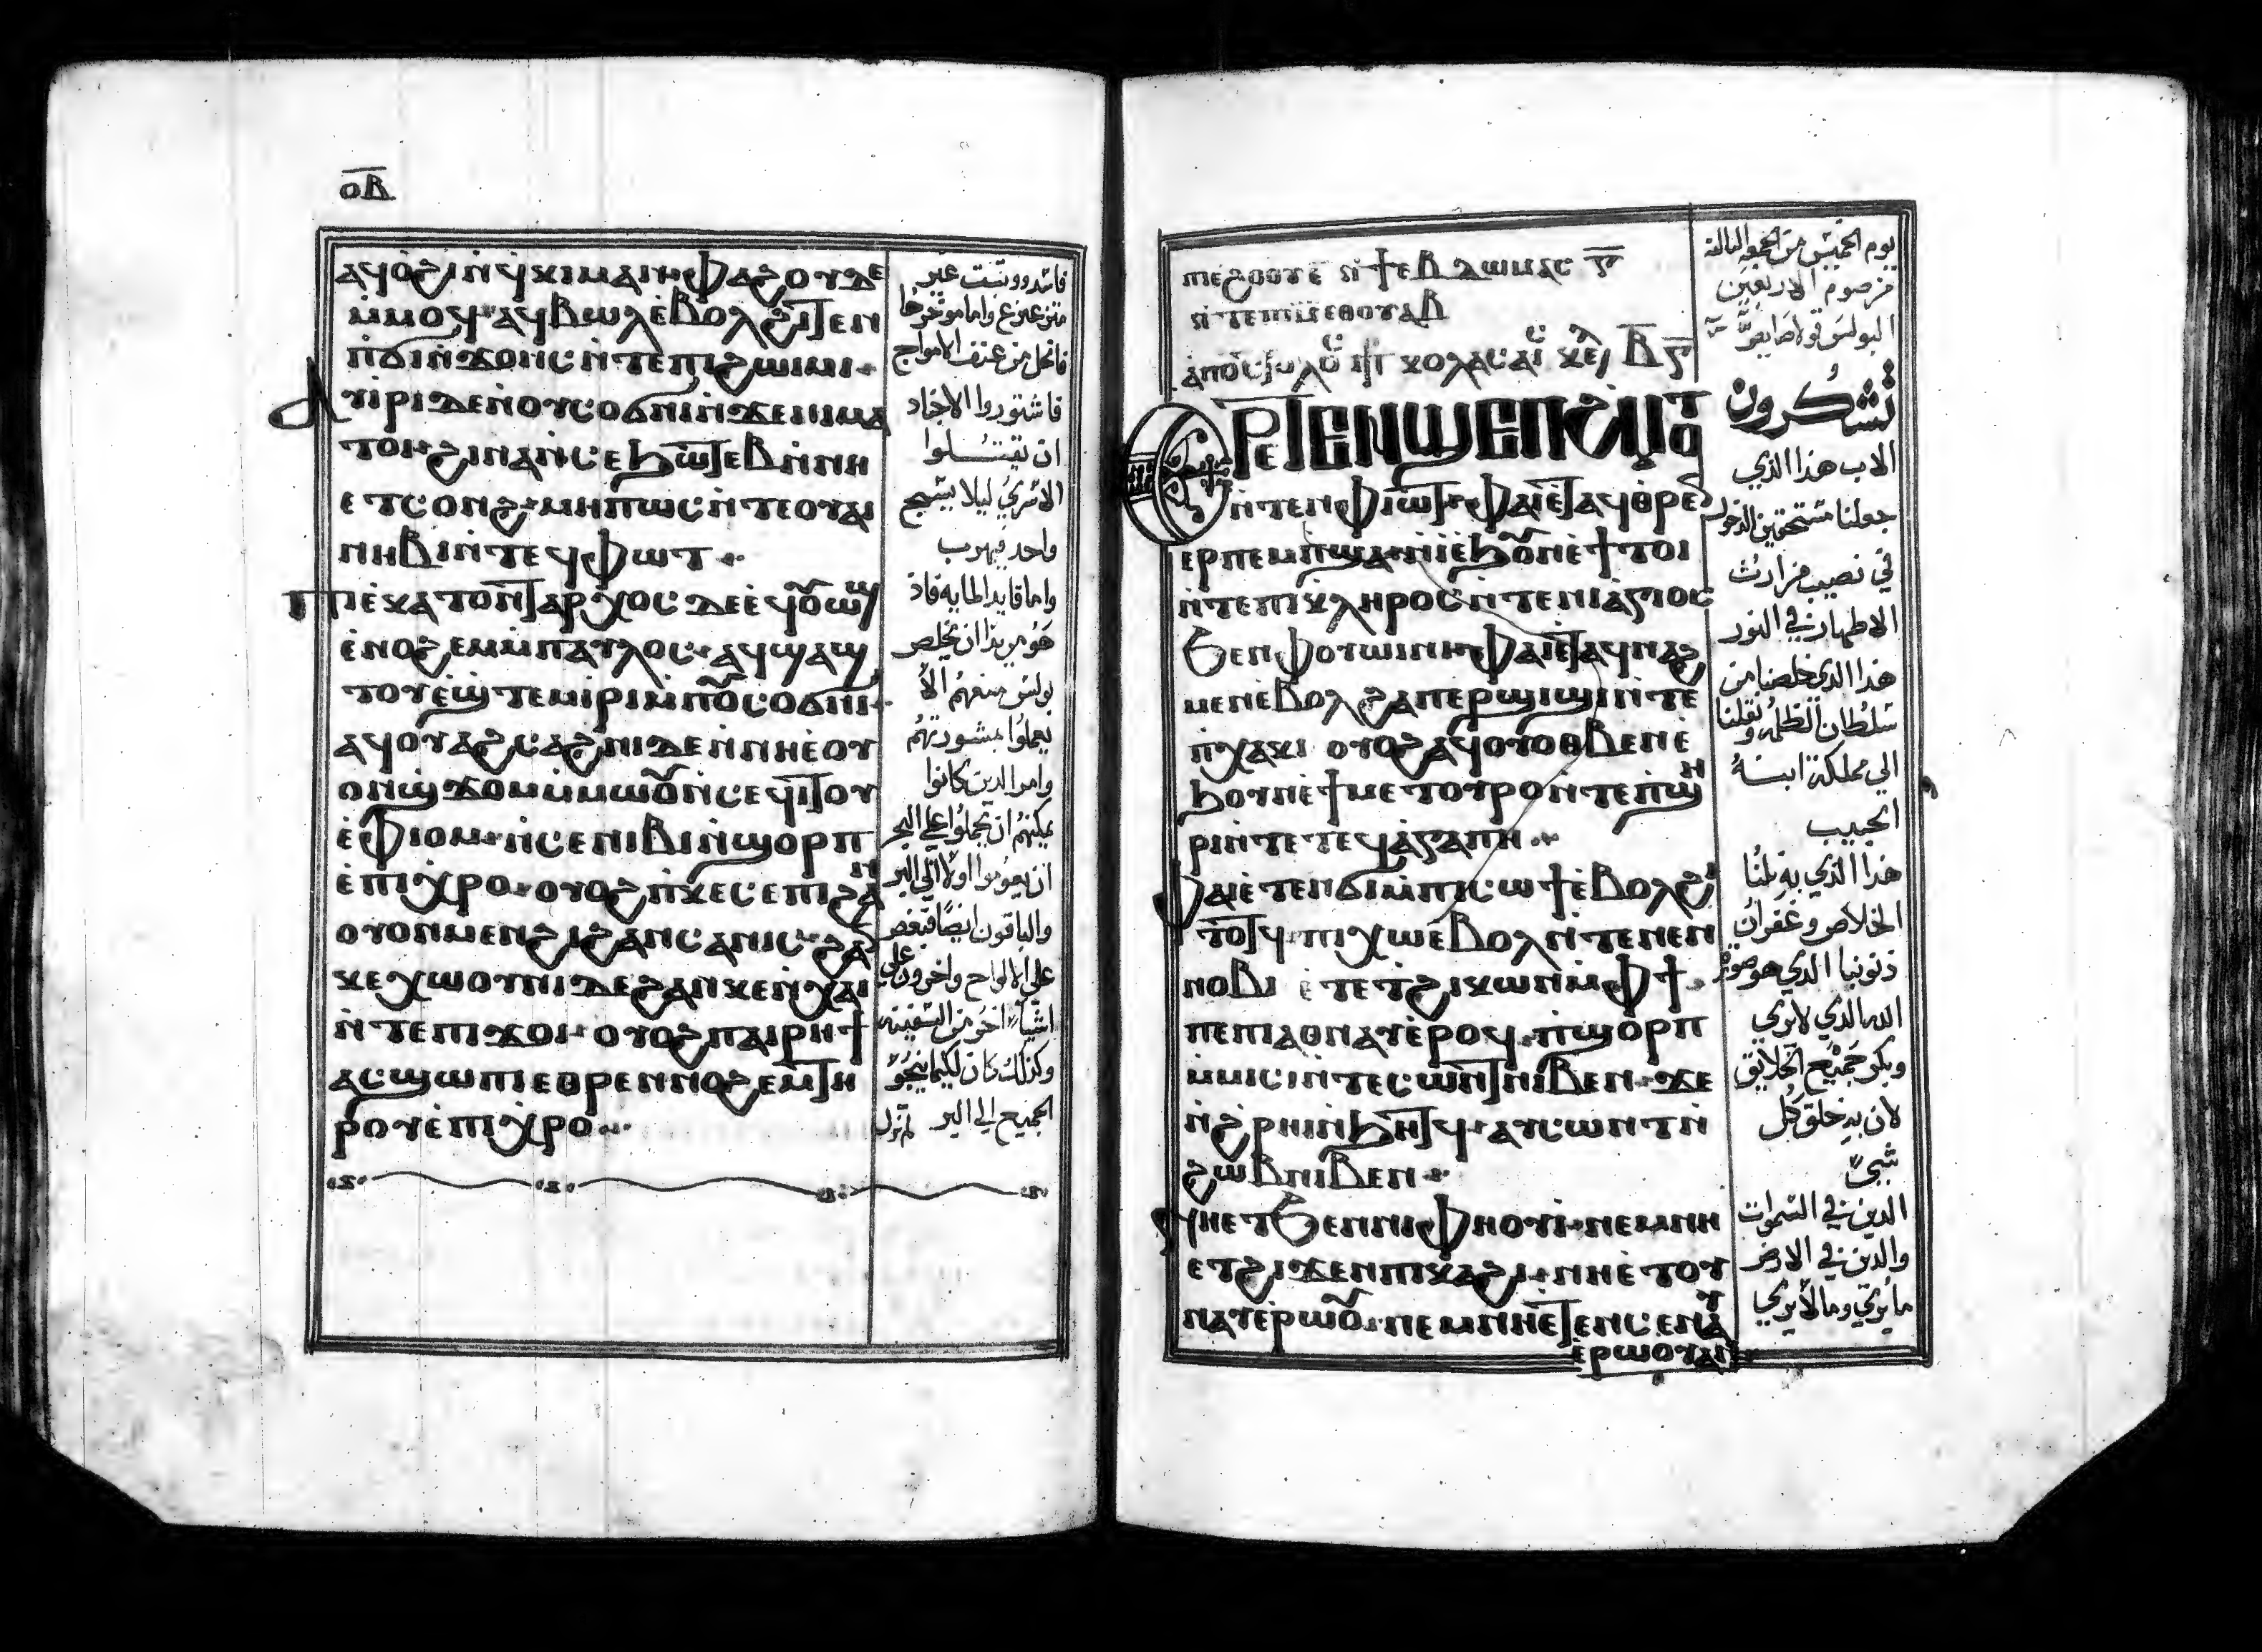 ⲟⲃ
ⲁϥⲟ̀ϩⲓ ⲛ̀ϥⲕⲓⲙ ⲁⲛ· ⲫⲁϩⲟⲩ ⲇⲉ
ⲙ̀ⲙⲟϥ· ⲁϥⲃⲱⲗ ⲉ̀ⲃⲟⲗ ϩⲓⲧⲉⲛ
ⲡ̀ϭⲓⲛϫⲟⲛⲥ ⲛ̀ⲧⲉ ⲡⲓϩⲱⲓⲙⲓ·
ⲁⲩⲓⲣⲓ ⲇⲉ ⲛⲟⲩⲥⲟϭⲛⲓ ⲛ̀ϫⲉ ⲛⲓⲙⲁ
ⲧⲟⲓ· ϩⲓⲛⲁ ⲛ̀ⲥⲉϧⲱⲧⲉⲃ ⲛ̀ⲛⲏ
ⲉⲧⲥⲟⲛϩ· ⲙⲏⲡⲱⲥ ⲛ̀ⲧⲉ ⲟⲩⲁⲓ
ⲛⲏⲃⲓ ⲛ̀ⲧⲉϥⲫⲱⲧ·
ⲡⲓⲉ̀ⲕⲁⲧⲟⲛⲧⲁⲣⲭⲟⲥ ⲇⲉ ⲉ̀ϥⲟⲩⲱϣ
ⲉ̀ⲛⲟϩⲉⲙ ⲙ̀ⲡⲁⲩⲗⲟⲥ· ⲁϥϣⲁϣ
ⲧⲟⲩ ⲉ̀ϣⲧⲉⲙⲓⲣⲓ ⲙ̀ⲡⲟⲩⲥⲟϭⲛⲓ·
ⲁϥⲟⲩⲁϩⲥⲁϩⲛⲓ ⲇⲉ ⲛ̀ⲛⲏ ⲉ̀ⲟⲩ
ⲟⲛϣϫⲟⲙ ⲙ̀ⲙⲱⲟⲩ ⲛ̀ⲥⲉϥⲓⲧⲟⲩ
ⲉ̀ⲫⲓⲟⲙ· ⲛ̀ⲥⲉⲛⲓⲃⲓ ⲛ̀ϣⲟⲣⲡ
ⲉ̀ⲡⲓⲭⲣⲟ· ⲟⲩⲟϩ ⲡ̀ⲕⲉⲥⲉⲡⲓ ϩⲁⲛ
ⲟⲩⲟⲛ ⲙⲉⲛ ϩⲓ ϩⲁⲛⲥⲁⲛⲓⲥ· ϩⲁⲛ
ⲕⲉⲭⲱⲟⲩⲛⲓ ⲇⲉ ϩⲁⲛⲕⲉⲛ̀ⲭⲁⲓ
ⲛ̀ⲧⲉ ⲡⲓϫⲟⲓ· ⲟⲩⲟϩ ⲡⲁⲓⲣⲏϯ
ⲁⲥϣⲱⲡⲓ ⲉⲑⲣⲉⲛⲛⲟϩⲉⲙ ⲧⲏ
ⲣⲟⲩ ⲉ̀ⲡⲓⲭⲣⲟ·
فاشتوروا الاجناد
ان يقتلوا
الاسري ليلا يسبح
واحد فيهرب
واما قايد المايه فاذ
هو مريدا ان يخلص
بولس منعهم الا
يعملوا مشورتهم
وامر الدين كانوا
يمكنهم ان يحملوا علي البحر
ان يعوموا اولا الي البر
والباقون ايضا فبعض
علي الالواح واخرون علي
اشيا اخر من السفينه
وكذلك كان لكيما ينجوا
الجميع الي البر
ⲡⲓⲉ̀ϩⲟⲟⲩ ⲉ̄ ⲛ̀ϯⲉⲃⲇⲱⲙⲁⲥ ⲅ̄
ⲛ̀ⲧⲉ ⲡⲓⲙ̄ ⲉⲑⲟⲩⲁⲃ
ⲁⲡⲟⲥⲧⲟⲗⲟⲩ ⲡⲣ ⲕⲟⲗⲁⲥⲁⲓⲥ ⲕⲉⲗ ⲃ̄ ⲅ̄
يوم الخميس من الجمعه التالته
من صوم الاربعين
ⲉⲣⲉⲧⲉⲛϣⲉⲡϩⲙⲟⲧ
ⲛ̀ⲧⲉⲛ ⲫⲓⲱⲧ· ⲫⲁⲓ ⲉ̀ⲧⲁϥⲑⲣⲉⲛ
ⲉⲣⲡⲉⲙⲡϣⲁ ⲛ̀ⲓ ⲉ̀ϧⲟⲩⲛ ⲉ̀ϯⲧⲟⲓ
ⲛ̀ⲧⲉ ⲡⲓⲕⲗⲏⲣⲟⲥ ⲛ̀ⲧⲉ ⲛⲓⲁ̀ⲅⲓⲟⲥ
ϧⲉⲛ ⲫⲟⲩⲱⲓⲛⲓ· ⲫⲁⲓ ⲉ̀ⲧⲁϥⲛⲁϩ
ⲙⲉⲛ ⲉ̀ⲃⲟⲗ ϩⲁ ⲡⲉⲣϣⲓϣⲓ ⲛ̀ⲧⲉ
ⲡ̀ⲭⲁⲕⲓ ⲟⲩⲟϩ ⲁϥⲟⲩⲟⲑⲃⲉⲛ ⲉ̀
ϧⲟⲩⲛ ⲉ̀ϯⲙⲉⲧⲟⲩⲣⲟ ⲛ̀ⲧⲉ ⲡ̀ϣⲏ
ⲣⲓ ⲛ̀ⲧⲉ ⲧⲉϥⲁ̀ⲅⲁⲡⲏ·
ⲫⲁⲓ ⲉ̀ⲧⲉⲛϭⲓ ⲙ̀ⲡⲓⲥⲱϯ ⲉ̀ⲃⲟⲗ ϩⲓ
ⲧⲟⲧϥ· ⲡⲓⲭⲱ ⲉ̀ⲃⲟⲗ ⲛ̀ⲧⲉ ⲛⲉⲛ
ⲛⲟⲃⲓ ⲉ̀ⲧⲉ ⲧ̀ϩⲓⲕⲱⲛ ⲙ̀ⲫϯ·
ⲡⲉ ⲡⲓⲁⲑⲛⲁⲩ ⲉ̀ⲣⲟϥ· ⲡ̀ϣⲟⲣⲡ
ⲙ̀ⲙⲓⲥⲓ ⲛ̀ⲧⲉ ⲥⲱⲛⲧ ⲛⲓⲃⲉⲛ· ϫⲉ
ⲛ̀ϩ̀ⲣⲏⲓ ⲛ̀ϧⲏⲧϥ· ⲁⲩⲥⲱⲛⲧ ⲛ̀
ϩⲱⲃ ⲛⲓⲃⲉⲛ·
ⲛⲏ ⲉⲧϧⲉⲛ ⲛⲓⲫⲏⲟⲩⲓ· ⲛⲉⲙ ⲛⲏ
ⲉⲧϩⲓϫⲉⲛ ⲡⲓⲕⲁϩⲓ· ⲛⲏ ⲉ̀ⲧⲟⲩ
ⲛⲁⲩ ⲉ̀ⲣⲱⲟⲩ· ⲛⲉⲙ ⲛⲏ ⲉ̀ⲧⲉⲛⲥⲉⲛⲁⲩ
ⲉ̀ⲣⲱⲟⲩ ⲁⲛ
تشكرون
الاب هذا الذي
جعلنا مستحقين الدخول
في نصيب ميراث
الاطهار في النور
هذا الذي خلصنا من
سلطان الظلمه ونقلنا
الي مملكة ابنه
الحبيب
هذا الذي به نلنا
الخلاص وغفران
ذنوبنا الذي هو صورة
الله الذي لا يري
وبكر جميع الخلايق
لان به خلق كل
شي
الدين في السموات
والدين في الارض
ما يري وما لا يري